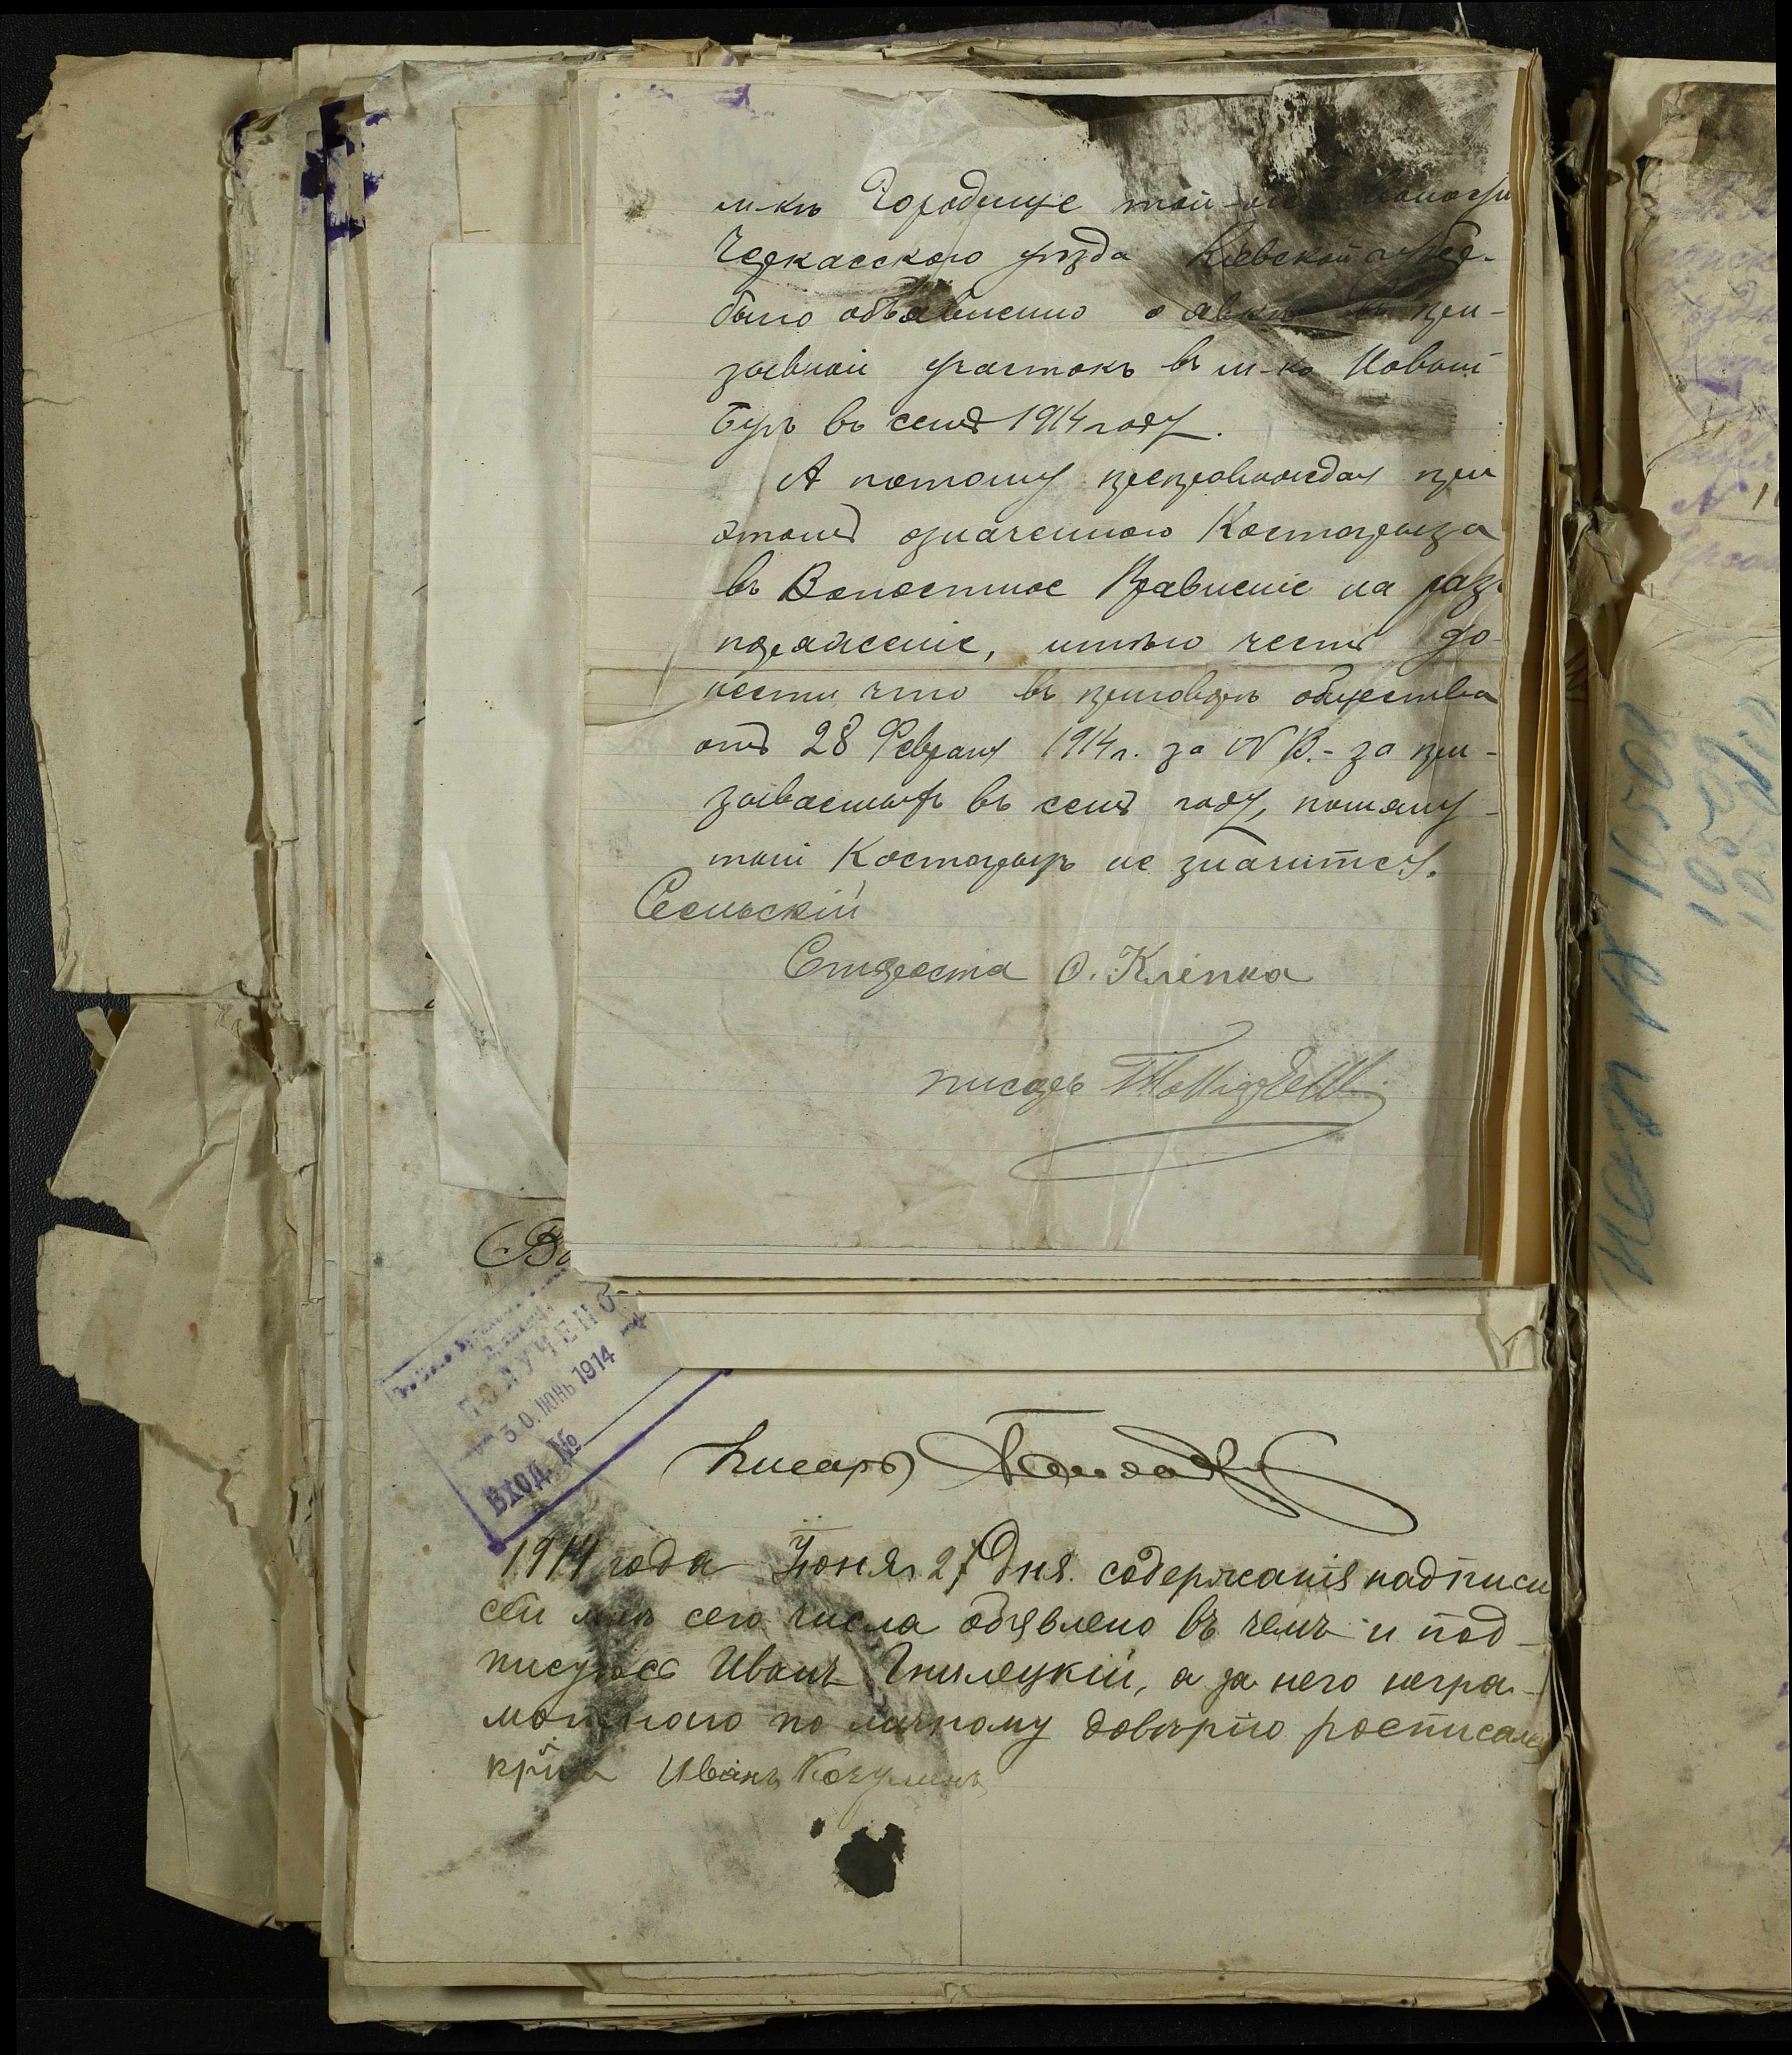 м-кѣ Городище той-же волости
Черкасского уѣзда Кіевской губер.
было объявленно о явкѣ въ при-
зывной участокъ въ м-ко Новый
Бугъ въ семъ 1914 году.
А потому препровождая при
этомъ означенного Костогрыза
въ Волостное Правленіе на раз
поряженіе, имѣю честь до-
нести что въ приговорѣ общества
отъ 28 Февраля 1914 г. за № 13.- за при-
зываемыхъ въ семъ году, помяну-
тый Костогрызъ не значится.
Сельскій
Староста О. Кліпка
писарь
Во
ПОЛУЧЕНО
30. ІЮНЬ 1914
ВХОД. №
Писарь
1914 года Іюня 27 Дня. содержанія надписи
сей мнѣ сего числа обявлено въ чемъ и под-
писуюсь Иванъ Гнилецкій, а за него негра-
мотного по личному довѣрію росписался
кр-нъ Иванъ
Нап №
10508
10509
10510